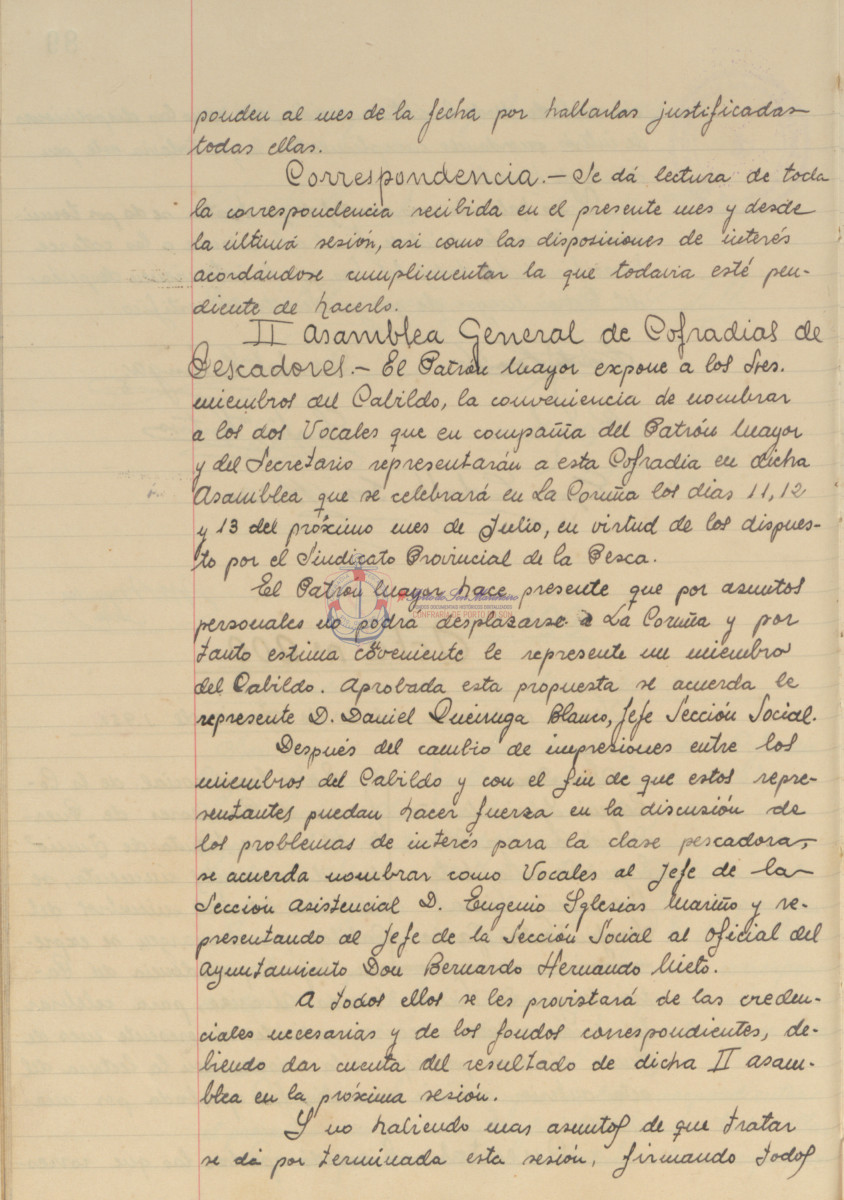 ponden al mes de la fecha por hallarlas justificadas
todas ellas.
Correspondencia.- Se dá lectura de toda
la correspondencia recibida en el presente mes y desde
la última sesión, asi como las disposiciones de interés
acordándose cumplimentar la que todavia esté pen-
diente de hacerlo.
II Asamblea General de Cofradias de
Pescadores.- El Patrón Mayor expone a los Sres.
miembros del Cabildo, la conveniencia de nombrar
a los dos Vocales que en compañia del Patrón Mayor
y del Secretario representarán a esta Cofradia en dicha
Asamblea que se celebrará en La Coruña los dias 11, 12
y 13 del próximo mes de Julio, en virtud de los dispues-
to por el Sindicato Provincial de la Pesca.
El Patrón Mayor hace presente que por asuntos
personales no podrá desplazarse a La Coruña y por
tanto estima coveniente le represente un miembro
del Cabildo. Aprobada esta propuesta se acuerda le
represente D. Daniel Queiruga Blanco, Jefe Sección Social.
Después del cambio de impresiones entre los
miembros del Cabildo y con el fin de que estos repre-
sentantes puedan hacer fuerza en la discusión de
los problemas de interés para la clase pescadora,
se acuerda nombrar como Vocales al Jefe de la
Sección Asistencial D. Eugenio Iglesias Mariño y re-
presentando al Jefe de la Sección Social al Oficial del
Ayuntamiento Don Bernardo Hernando Nieto.
A todos ellos se les provistará de las creden-
ciales necesarias y de los fondos correspondientes, de-
biendo dar cuenta del resultado de dicha II Asam-
blea en la próxima sesión.
Y no habiendo mas asuntos de que tratar
se dá por terminada esta sesión, firmando todos